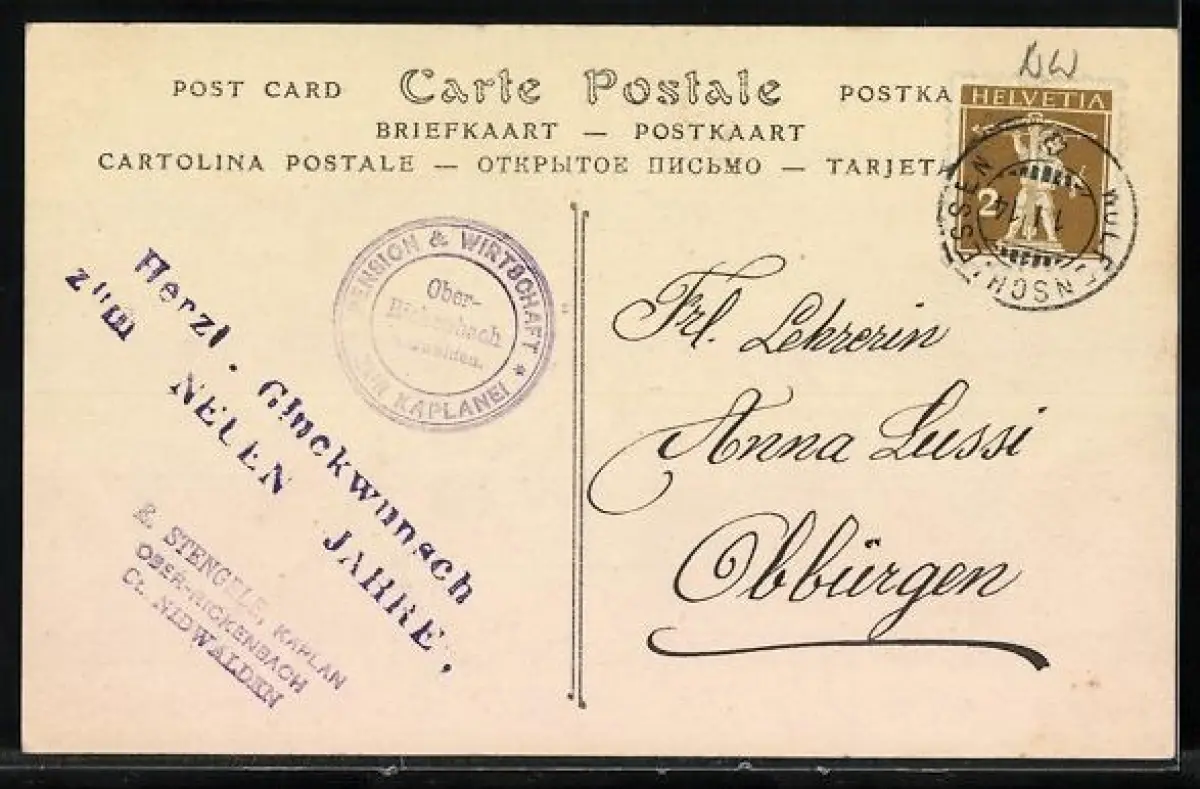 NW
POST CARD Carte Postale POSTKA
BRIEFKAART — POSTKAART
CARTOLINA POSTALE — ОТКРЫТОЕ ПИСЬМО — TARJETA
HELVETIA
2
WOLFENSCHIESSEN
1.I.14
PENSION & WIRTSCHAFT * ZUR KAPLANEI
Ober-
Rickenbach
Nidwalden.
Herzl. Glückwunsch
zum NEUEN JAHRE,
STENGELE, KAPLAN
OBER-RICKENBACH
Ct. NIDWALDEN
Frl. Lehrerin
Anna Lussi
Obbürgen